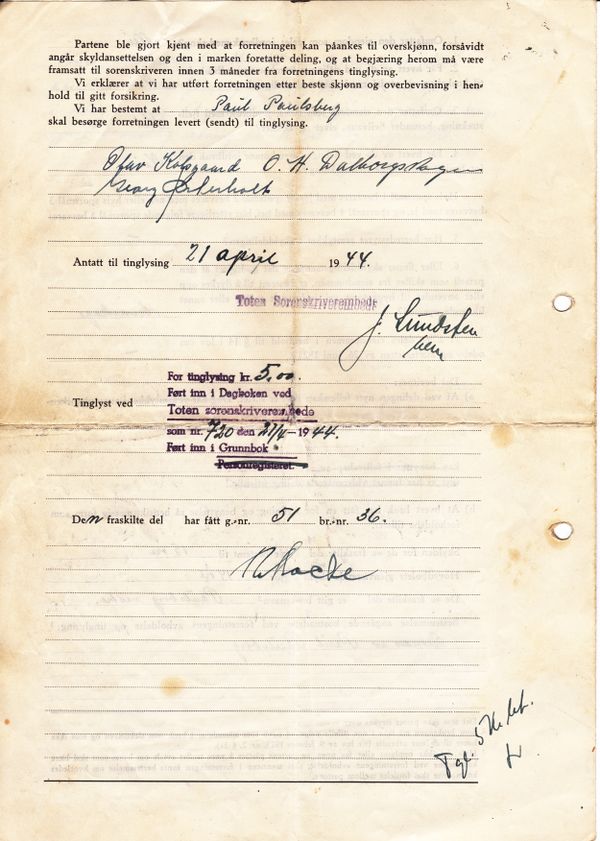 Partene ble gjort kjent med at forretningen kan påankes til overskjønn, forsåvidt
angår skyldansettelsen og den i marken foretatte deling, og at begjæring herom må være
framsatt til sorenskriveren innen 3 måneder fra forretningens tinglysing.
Vi erklærer at vi har utført forretningen etter beste skjønn og overbevisning i hen-
hold til gitt forsikring.
Vi har bestemt at Paul Paulsberg
skal besørge forretningen levert (sendt) til tinglysing.
Olav Kolsgaard O. H. Dalborgshagen
Georg
Antatt til tinglysing 21 april 1944.
Toten Sorenskriverembede
J. Lundsten
For tinglysing kr. 5,00.
Ført inn i Dagboken ved
Tinglyst ved Toten sorenskriverembede
som nr. 720 den 21/4-1944.
Ført inn i Grunnbok
Personregisteret.
Den fraskilte del har fått g.-nr. 51 br.-nr. 36.
Tgl. 5